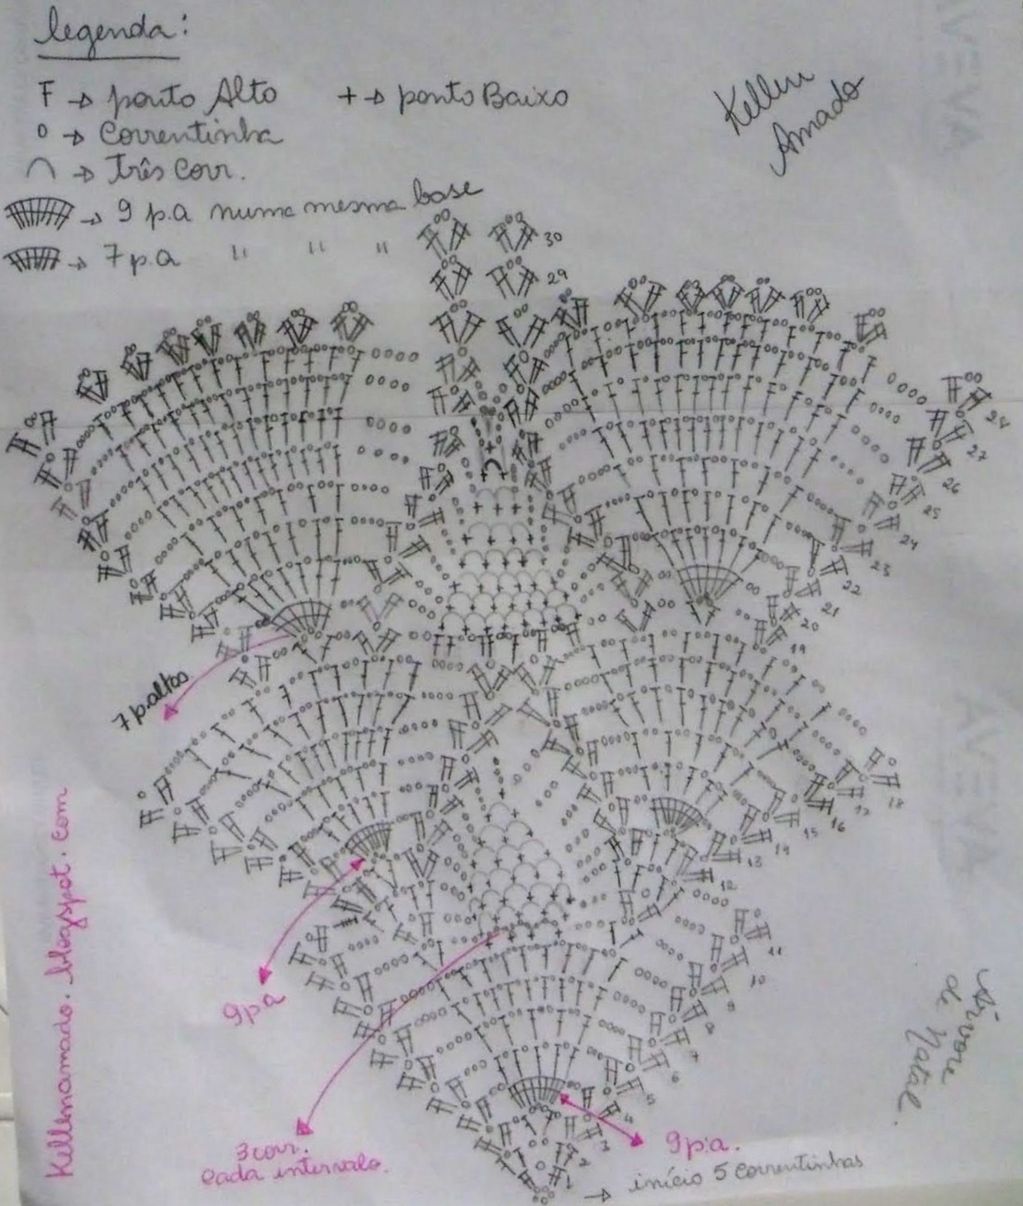 legenda:
F → ponto Alto + → ponto Baixo
o → Correntinha
⌒ → Três Corr.
→ 9 p.a numa mesma base
→ 7 p.a " " "
Kellen
Amado
30
29
28
27
26
25
24
23
22
21
20
19
7 p.altos
18
17
16
15
14
13
12
11
10
9
8
7
6
5
4
3
2
1
9 p.a
3 corr.
cada intervalo.
9 p.a.
→ início 5 correntinhas
Kellenamado.blogspot.com
Árvore
de
Natal
AVEVA
AVEVA